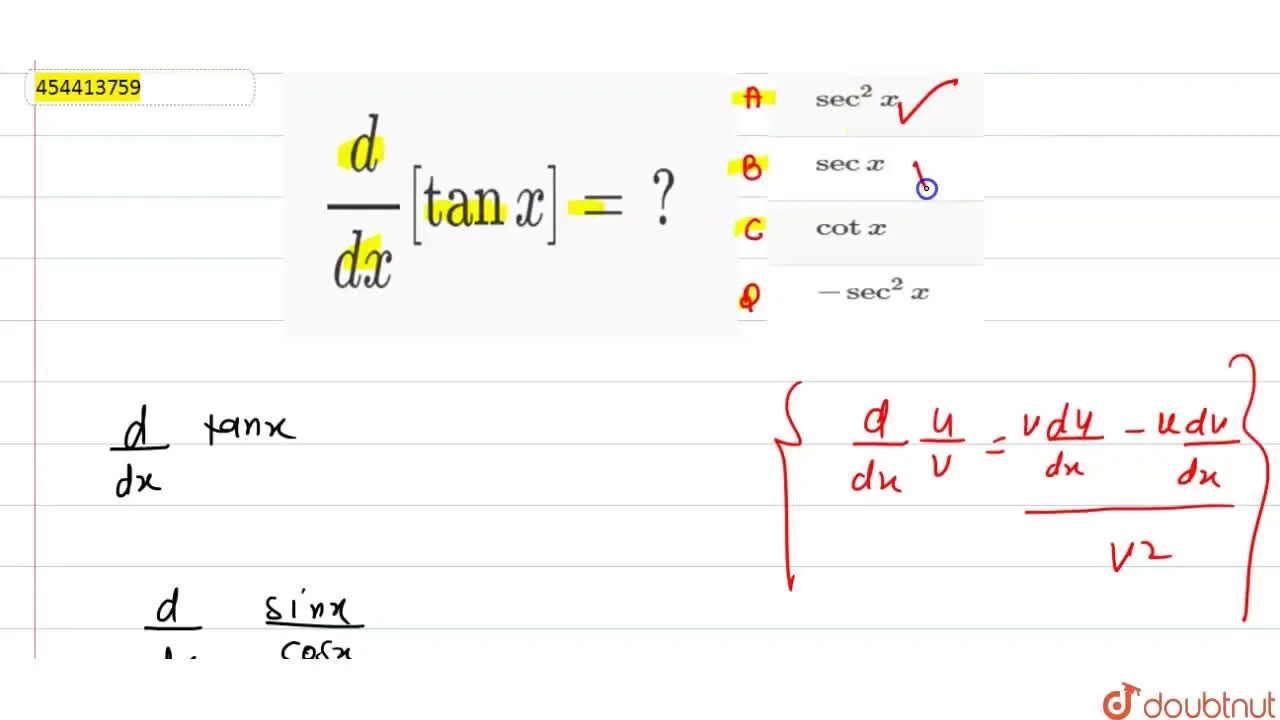 454413759
d/dx [tan x] = ?
A sec² x
B sec x
C cot x
D − sec² x
d/dx tanx
{ d/dx u/v = (v du/dx − u dv/dx) / v² }
d sinx
cosx
doubtnut